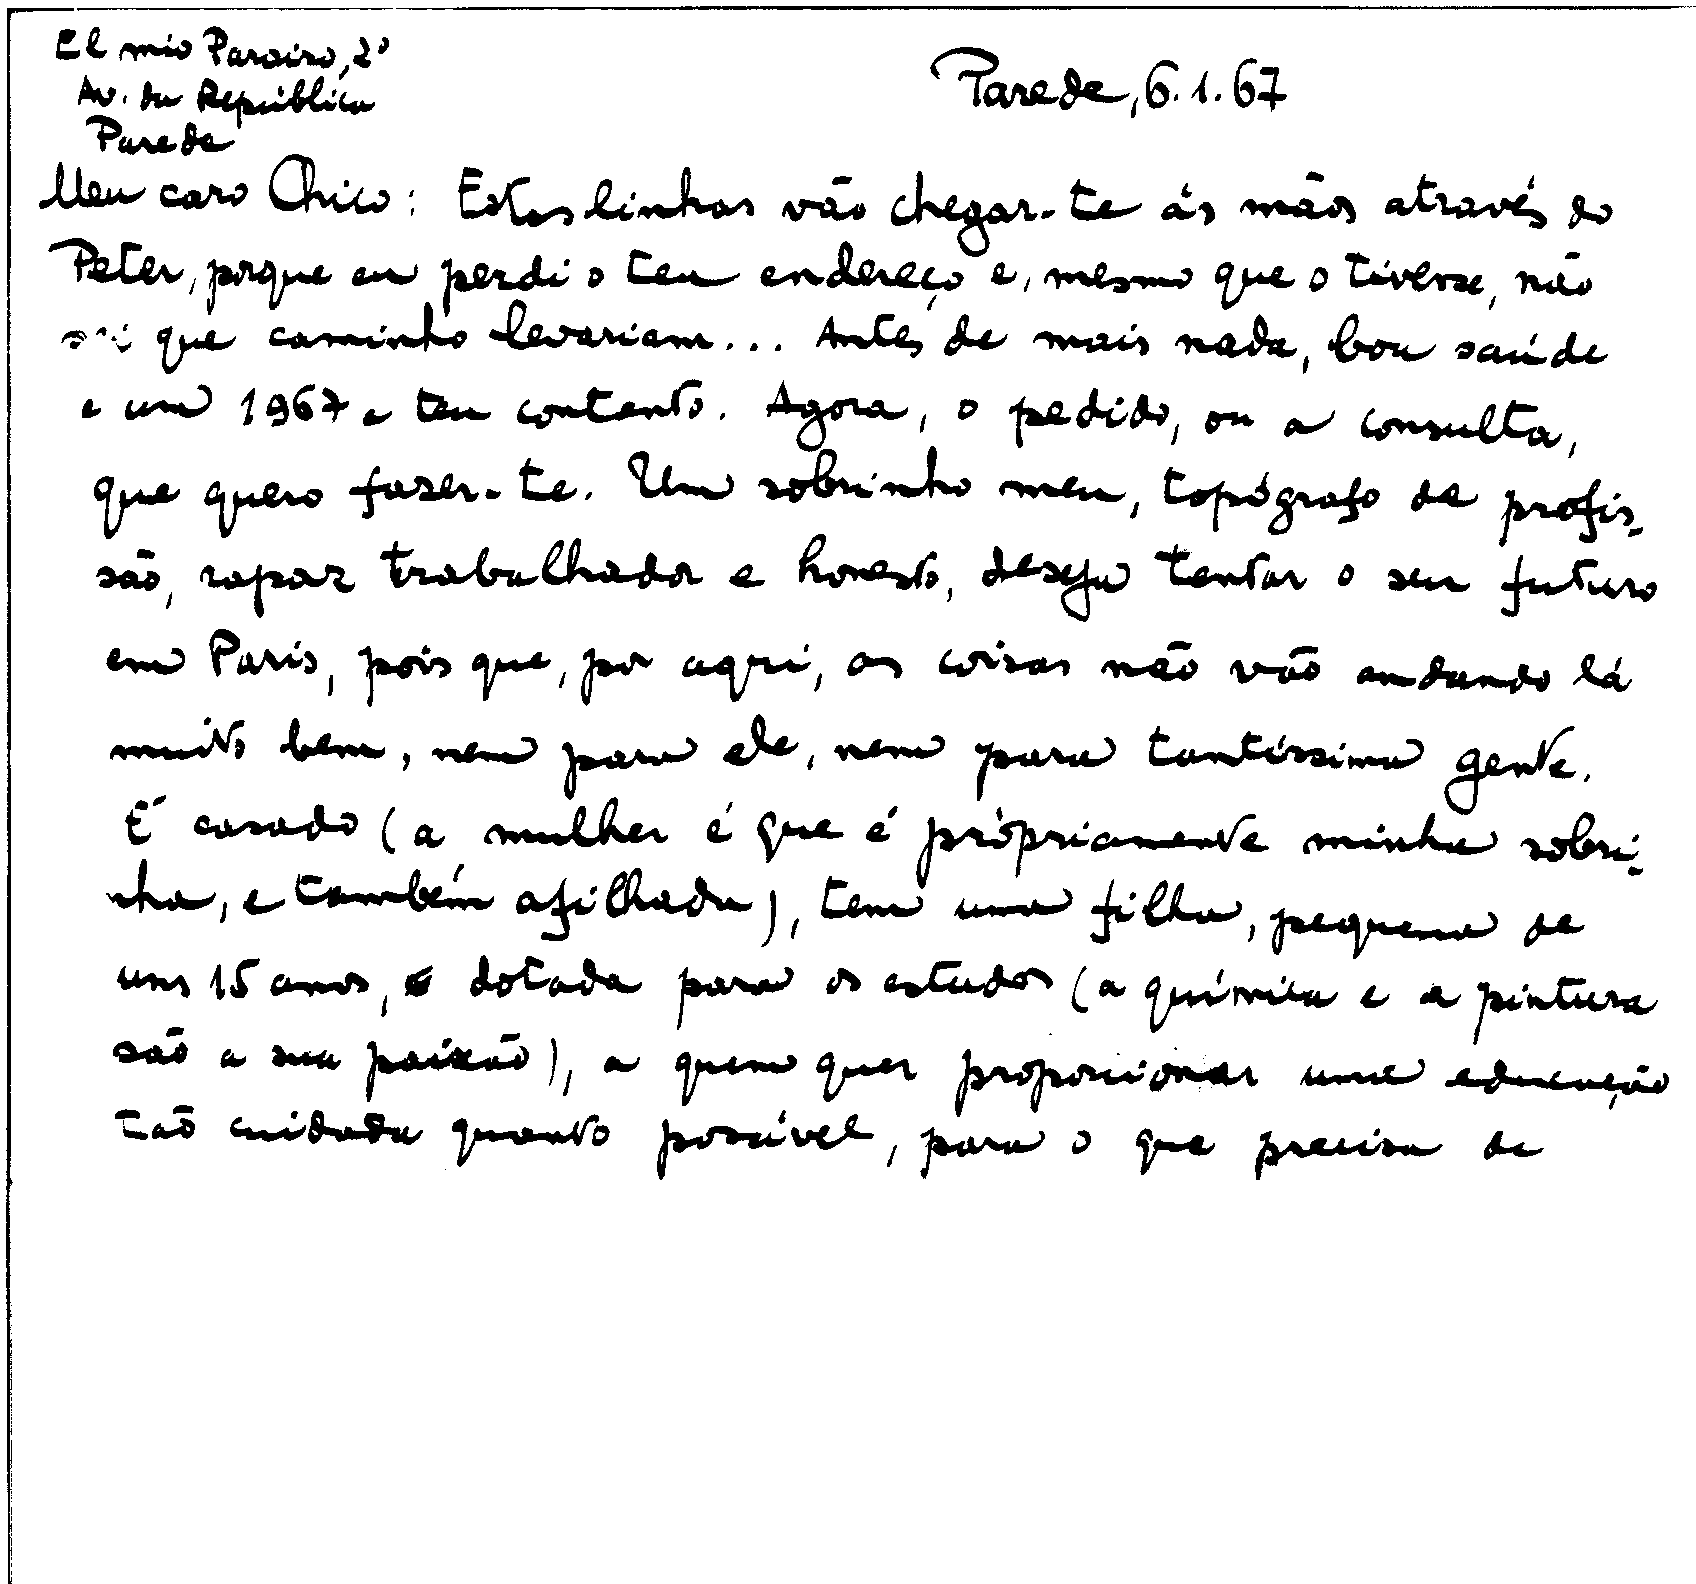 El mio Paraiso, 2º
Av. da República
Parede
Parede, 6.1.67
Meu caro Chico: Estas linhas vão chegar-te às mãos através do
Peter, porque eu perdi o teu endereço e, mesmo que o tivesse, não
sei que caminho levariam... Antes de mais nada, boa saúde
e um 1967 a teu contento. Agora, o pedido, ou a consulta,
que quero fazer-te. Um sobrinho meu, topógrafo de profis-
são, rapaz trabalhador e honesto, deseja tentar o seu futuro
em Paris, pois que, por aqui, as coisas não vão andando lá
muito bem, nem para ele, nem para tantíssima gente.
É casado (a mulher é que é pròpriamente minha sobri-
nha, e também afilhada), tem uma filha, pequena de
uns 15 anos, dotada para os estudos (a química e a pintura
são a sua paixão), a quem quer proporcionar uma educação
tão cuidada quanto possível, para o que precisa de